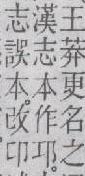 王莽更名之
漢志本作邛。
志誤本。改卬